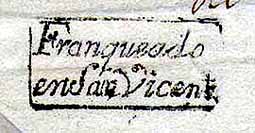 Franqueado
en San Vicente